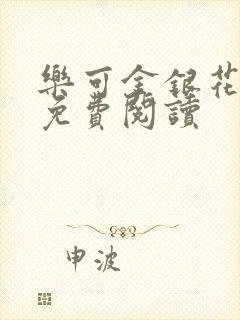 樂可金銀花
免費閱讀
申波